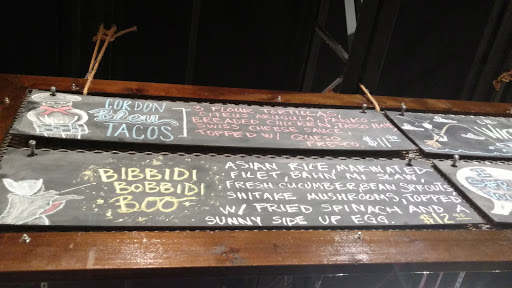 GORDON
Bleu
TACOS
3 FLOUR TORTILLAS
CITRUS ARUGULA, PANKO
BREADED CHICKEN, TASSO HAM
SWISS CHEESE SAUCE
TOPPED W/ QUESO
FRESCO. $11
BIBBIDI
BOBBIDI
BOO
ASIAN RICE, MARINATED
FILET, BAHN MI SLAW
FRESH CUCUMBER, BEAN SPROUTS,
SHITAKE MUSHROOMS, TOPPED
W/ FRIED SPINACH AND A
SUNNY SIDE UP EGG. $12